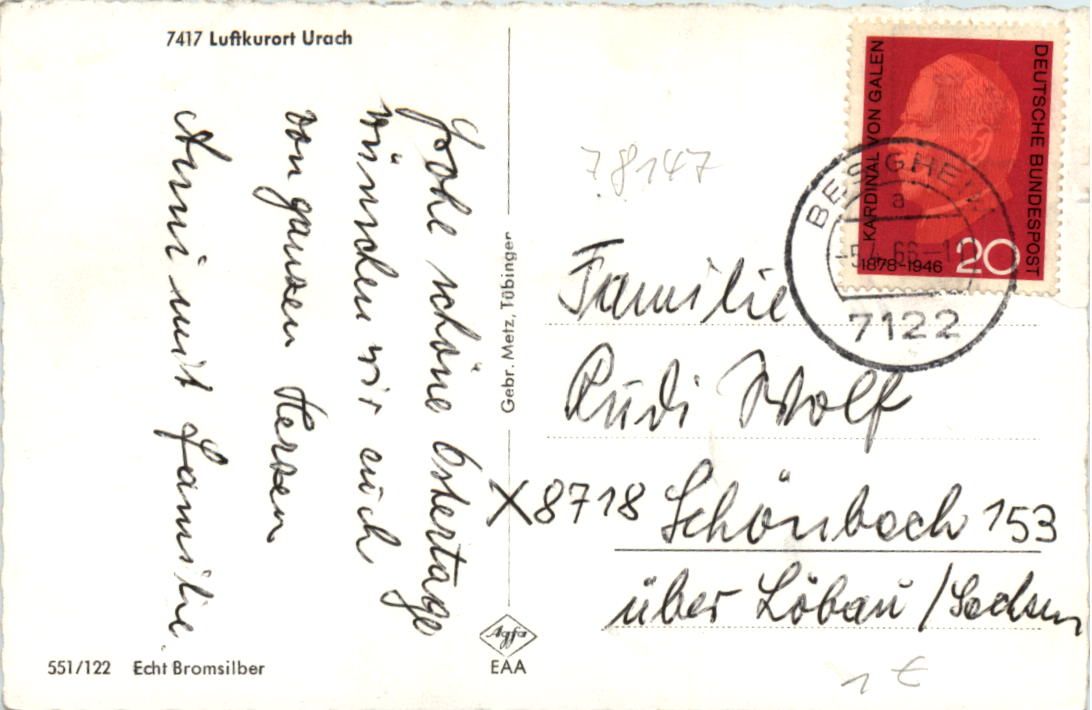 7417 Luftkurort Urach
Frohe schöne Ostertage
wünschen wir euch
von ganzen Herzen
Anni mit Familie.
551/122 Echt Bromsilber
Gebr. Metz, Tübingen
Agfa
EAA
78147
DEUTSCHE BUNDESPOST
KARDINAL VON GALEN
1878-1946
20
BESIGHEIM
a
-5.4.66-1
7122
Familie
Rudi Wolf
X8718 Schönbach 153
über Löbau / Sachsen
1 €